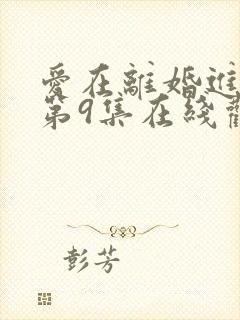 愛在離婚進
第9集在綫觀
彭芳